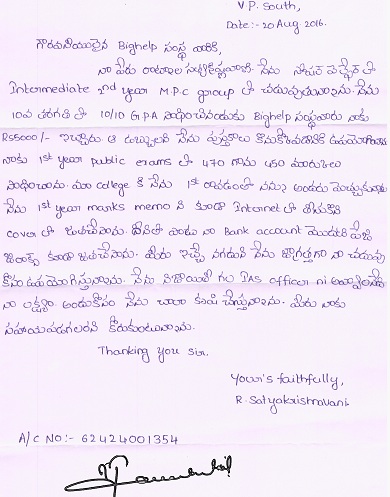 V.P. South,
Date:- 20 Aug 2016.
గౌరవనీయులైన Bighelp సంస్థ వారికి,
నా పేరు రాణాల సత్యకృష్ణవాణి. నేను పెట్లేరు లో
Intermediate 2nd year M.P.C group లో చదువుతున్నాను. నేను
10వ తరగతి లో 10/10 G.P.A సాధించినందుకు Bighelp సంస్థవారు నాకు
Rs5000/- ఇచ్చారు ఆ డబ్బులని నేను పుస్తకాలు కొనుక్కోవడానికి
నాకు 1st year public exams లో 470 గాను 450 మార్కులు
సాధించాను. మా college కి నేను 1st రావడంతో నన్ను అందరు మెచ్చుకున్నారు
నేను 1st year marks memo ని కూడా Internet లో తీసుకొని
cover లో జతచేసాను. దీనితో పాటు నా Bank account మొదటి పేజీ
జిరాక్స్ కూడా జతచేసాను. మీరు ఇచ్చే నగదుని నేను జాగ్రత్తగా నా చదువు
కోసం ఉపయోగిస్తున్నాను. నేను నిజాయితీ గల IAS officer ni అవ్వాలనేది
నా లక్ష్యం అందుకోసం నేను చాలా కృషి చేస్తున్నాను. మీరు నాకు
సహాయపడగలరని కోరుకుంటున్నాను.
Thanking you sir.
Your's faithfully,
R. Satyakrishnavani.
A/C NO:- 62424001354